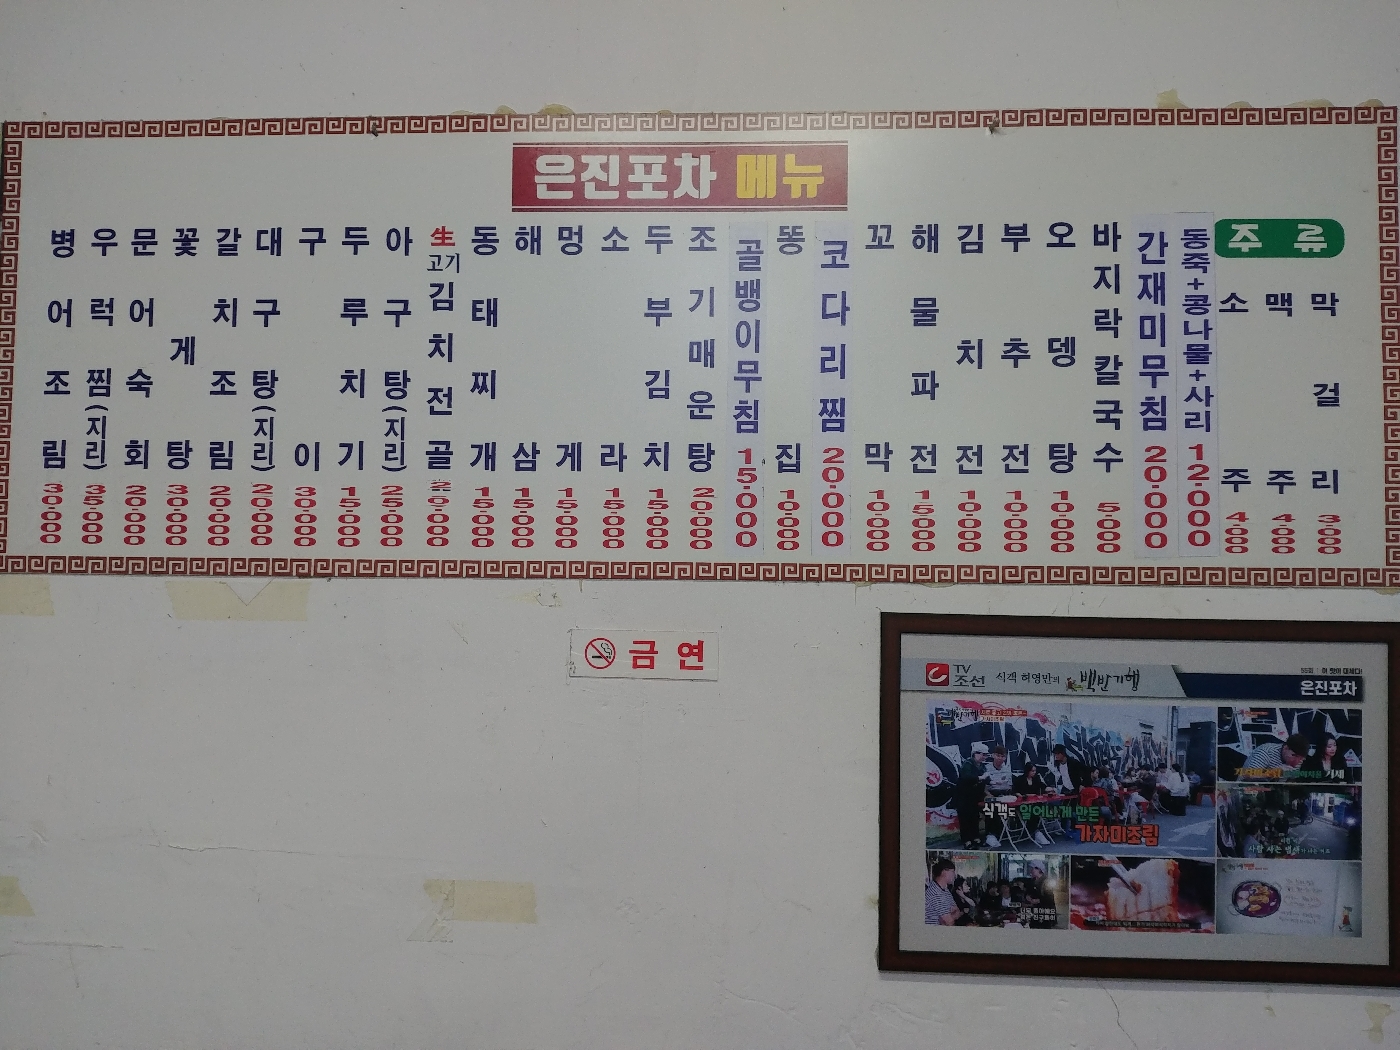 은진포차 메뉴
병어조림 30.000
우럭찜(지리) 35.000
문어숙회 20.000
꽃게탕 30.000
갈치조림 20.000
대구탕(지리) 25.000
구이 30.000
두루치기 15.000
아구탕(지리) 25.000
生고기김치전골
동태찌개 15.000
해삼 15.000
멍게 15.000
소라 15.000
두부김치 15.000
조기매운탕 20.000
골뱅이무침 15.000
똥집 10.000
코다리찜 20.000
꼬막 10.000
해물파전 15.000
김치전 10.000
부추전 10.000
오뎅탕 10.000
바지락칼국수 5.000
간재미무침 20.000
동죽+콩나물+사리 12.000
주류
소주 4.000
맥주 4.000
막걸리 3.000
금연
TV조선 식객 허영만의 백반기행
은진포차
식객도 일어나게 만든
가자미조림